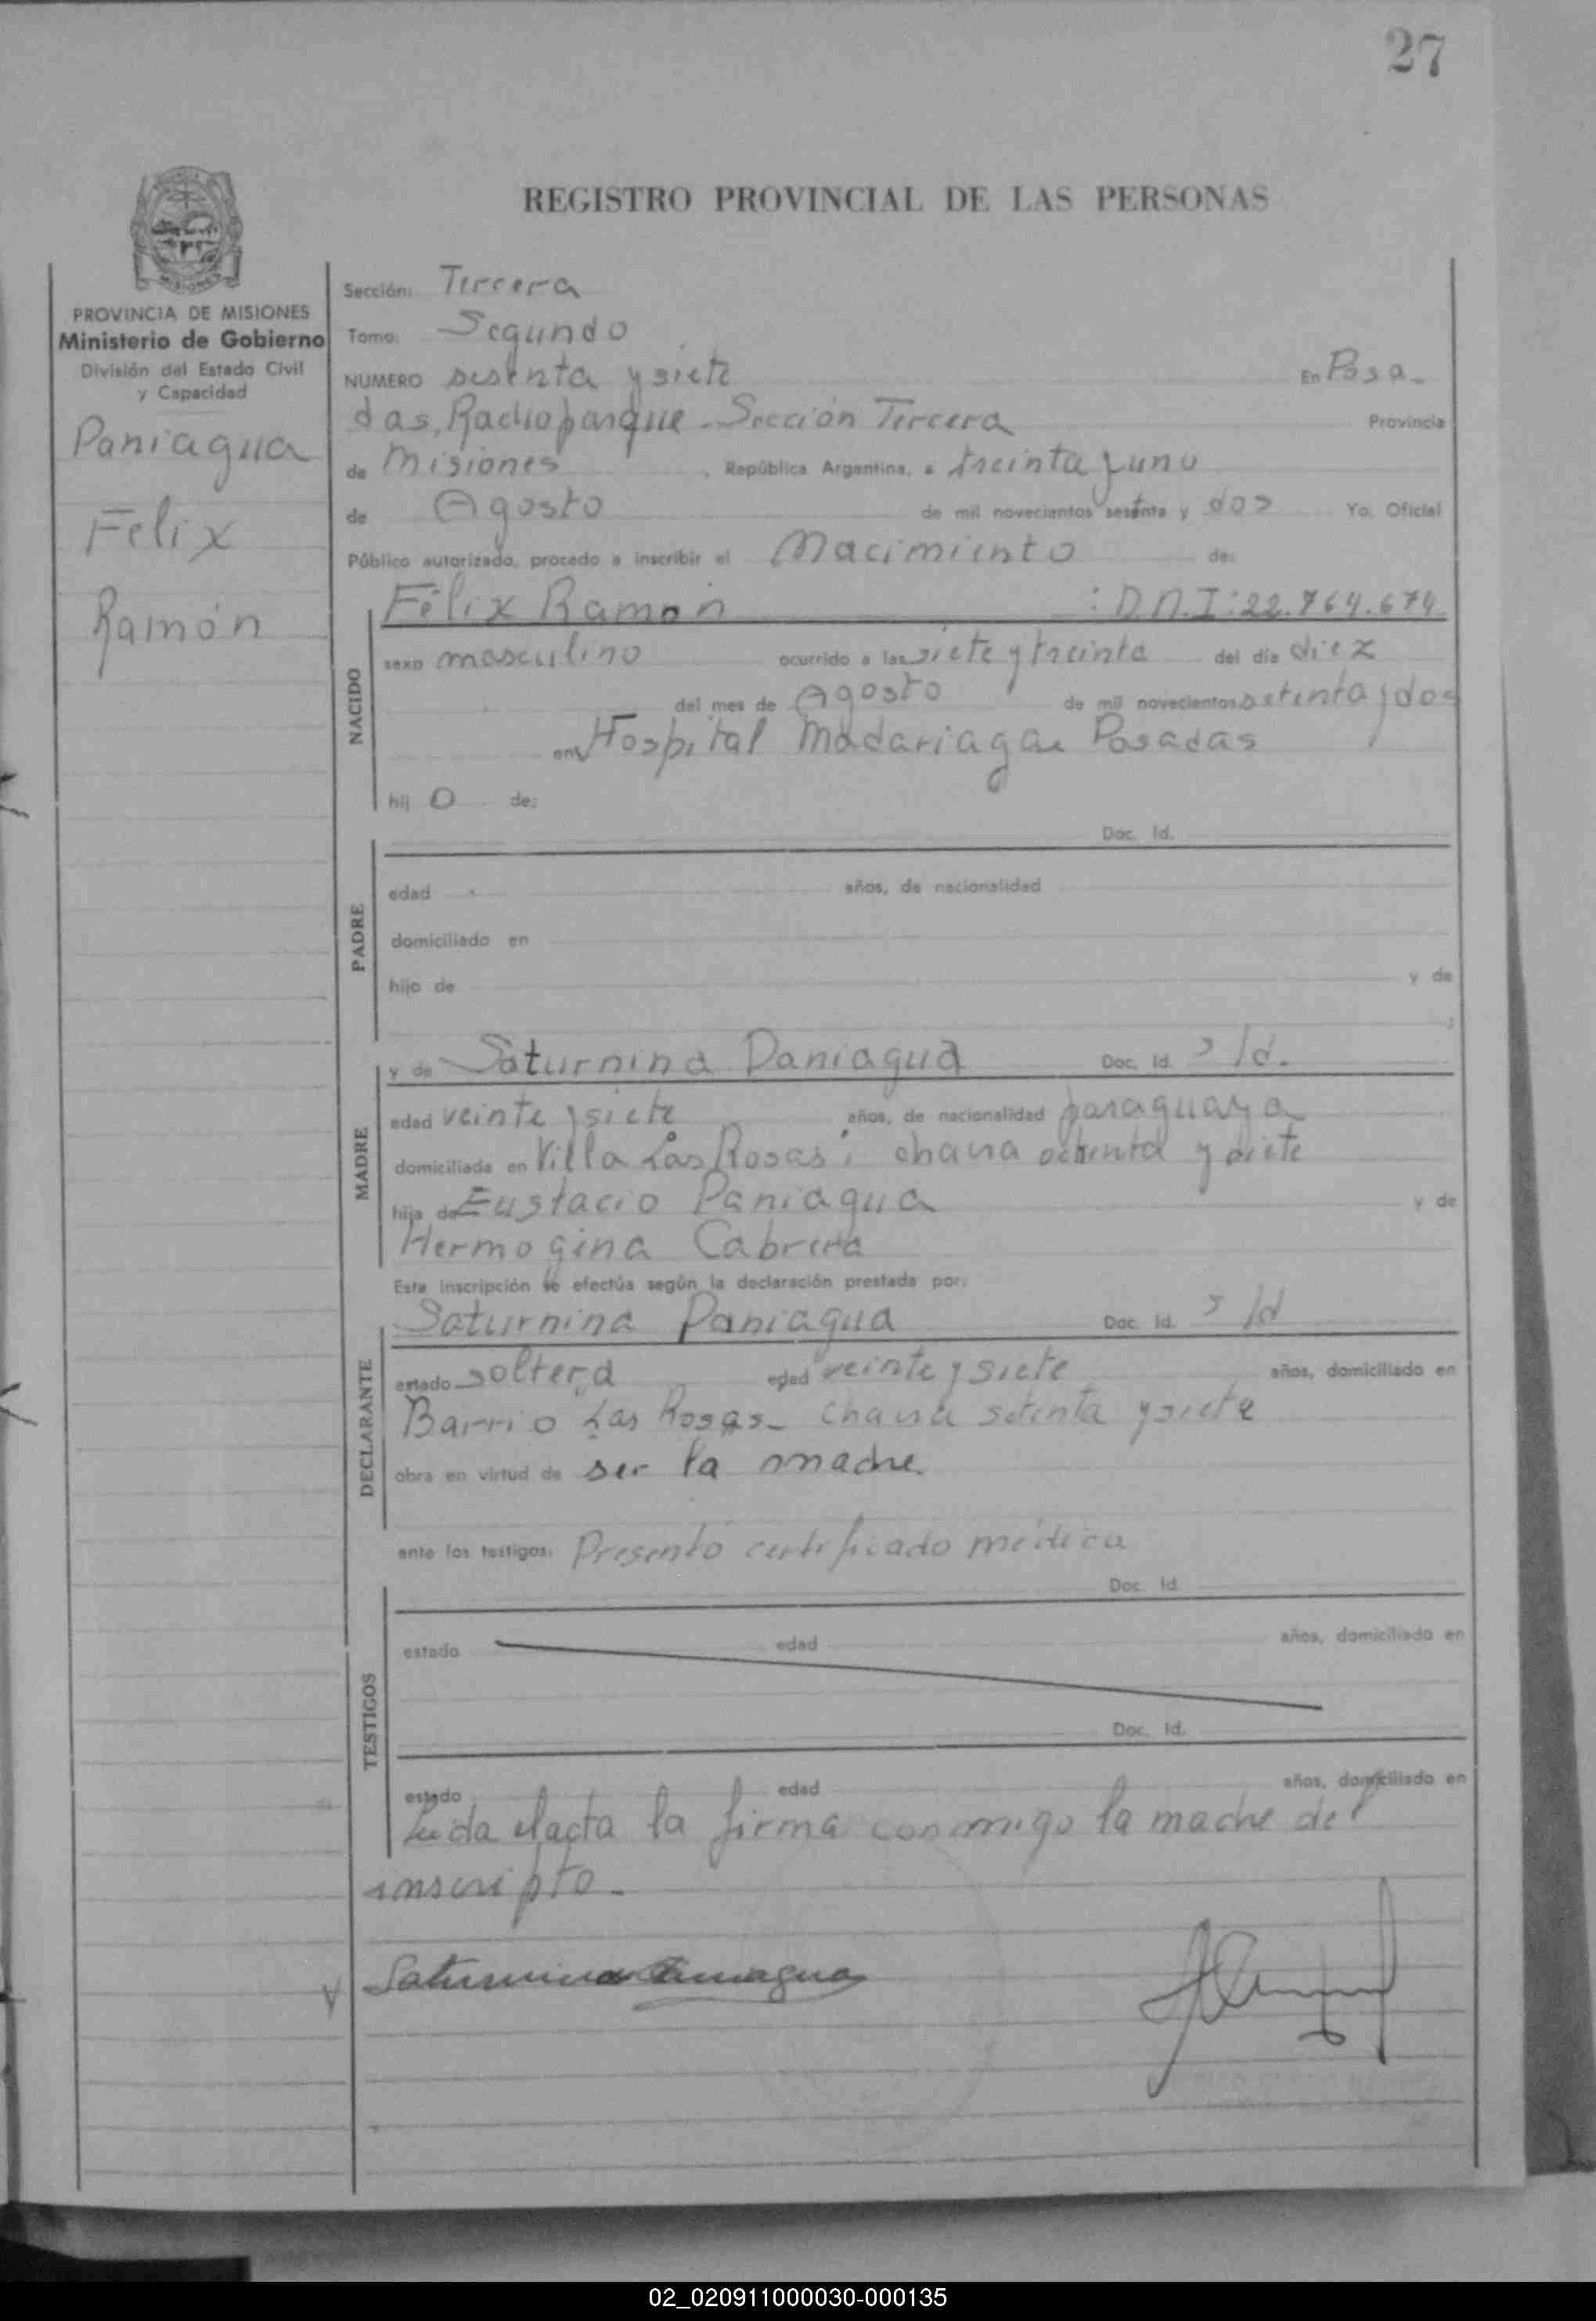 27
REGISTRO PROVINCIAL DE LAS PERSONAS
PROVINCIA DE MISIONES
Ministerio de Gobierno
División del Estado Civil
y Capacidad
Paniagua
Felix
Ramón
Sección: Tercera
Tomo: Segundo
NUMERO sesenta y siete En Posa-
das, Radioparque - Sección Tercera Provincia
de Misiones, República Argentina, a treinta y uno
de Agosto de mil novecientos sesenta y dos Yo, Oficial
Público autorizado, procedo a inscribir el Nacimiento de:
NACIDO
Félix Ramón : D.N.I: 22.764.674
sexo masculino ocurrido a las siete y treinta del día diez
del mes de Agosto de mil novecientos setenta y dos
en Hospital Madariaga Posadas
hij o de:
PADRE
Doc. Id.
edad años, de nacionalidad
domiciliado en
hijo de y de
MADRE
y de Saturnina Paniagua Doc. Id. s/d.
edad veinte y siete años, de nacionalidad paraguaya
domiciliada en Villa Las Rosas; chacra y siete
hija de Eustacio Paniagua y de
Hermogina Cabrera
Esta inscripción se efectúa según la declaración prestada por:
DECLARANTE
Saturnina Paniagua Doc. Id. s/d
estado soltera edad veinte y siete años, domiciliado en
Barrio Las Rosas - Chacra setenta y siete
obra en virtud de ser la madre
ante los testigos: Presentó certificado médico
TESTIGOS
Doc. Id.
estado edad años, domiciliado en
Doc. Id.
estado edad años, domiciliado en
Leida el acta la firma conmigo la madre del
inscripto.-
Saturnina Paniagua
02_020911000030-000135